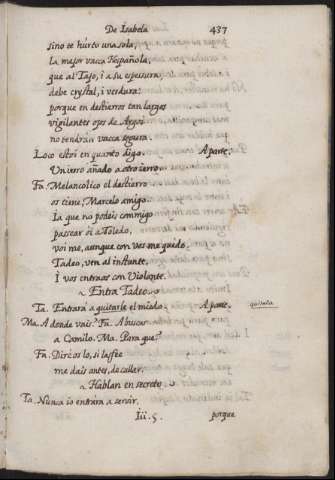 De Isabela 437
sino te hurto una sola,
la mejor vacca Española,
que al Tajo, i a su espessura
debe crystal, i verdura:
porque en destierros tan largos
vigilantes ojos de Argos
no tendrán vacca segura.
Loco estoi en quanto digo. Aparte.
Un ierro añado a otro ierro.
Fa. Melancolico el destierro
os tiene, Marcelo amigo.
Ia que no podeis commigo
passear oi a Toledo,
voi me, aunque con vos me quedo.
Tadeo, ven al instante,
I vos entraos con Violante.
Entra Tadeo.
Ta. Entrará a quitarle el miedo. Aparte. quitalla
Ma. A donde vais? Fa. A buscar
a Camilo. Ma. Para que?
Fa. Diréos lo, si la fee
me dais antes, de callar.
Hablan en secreto
Ta. Nunca io entrára a servir,
Iii. 5. porque